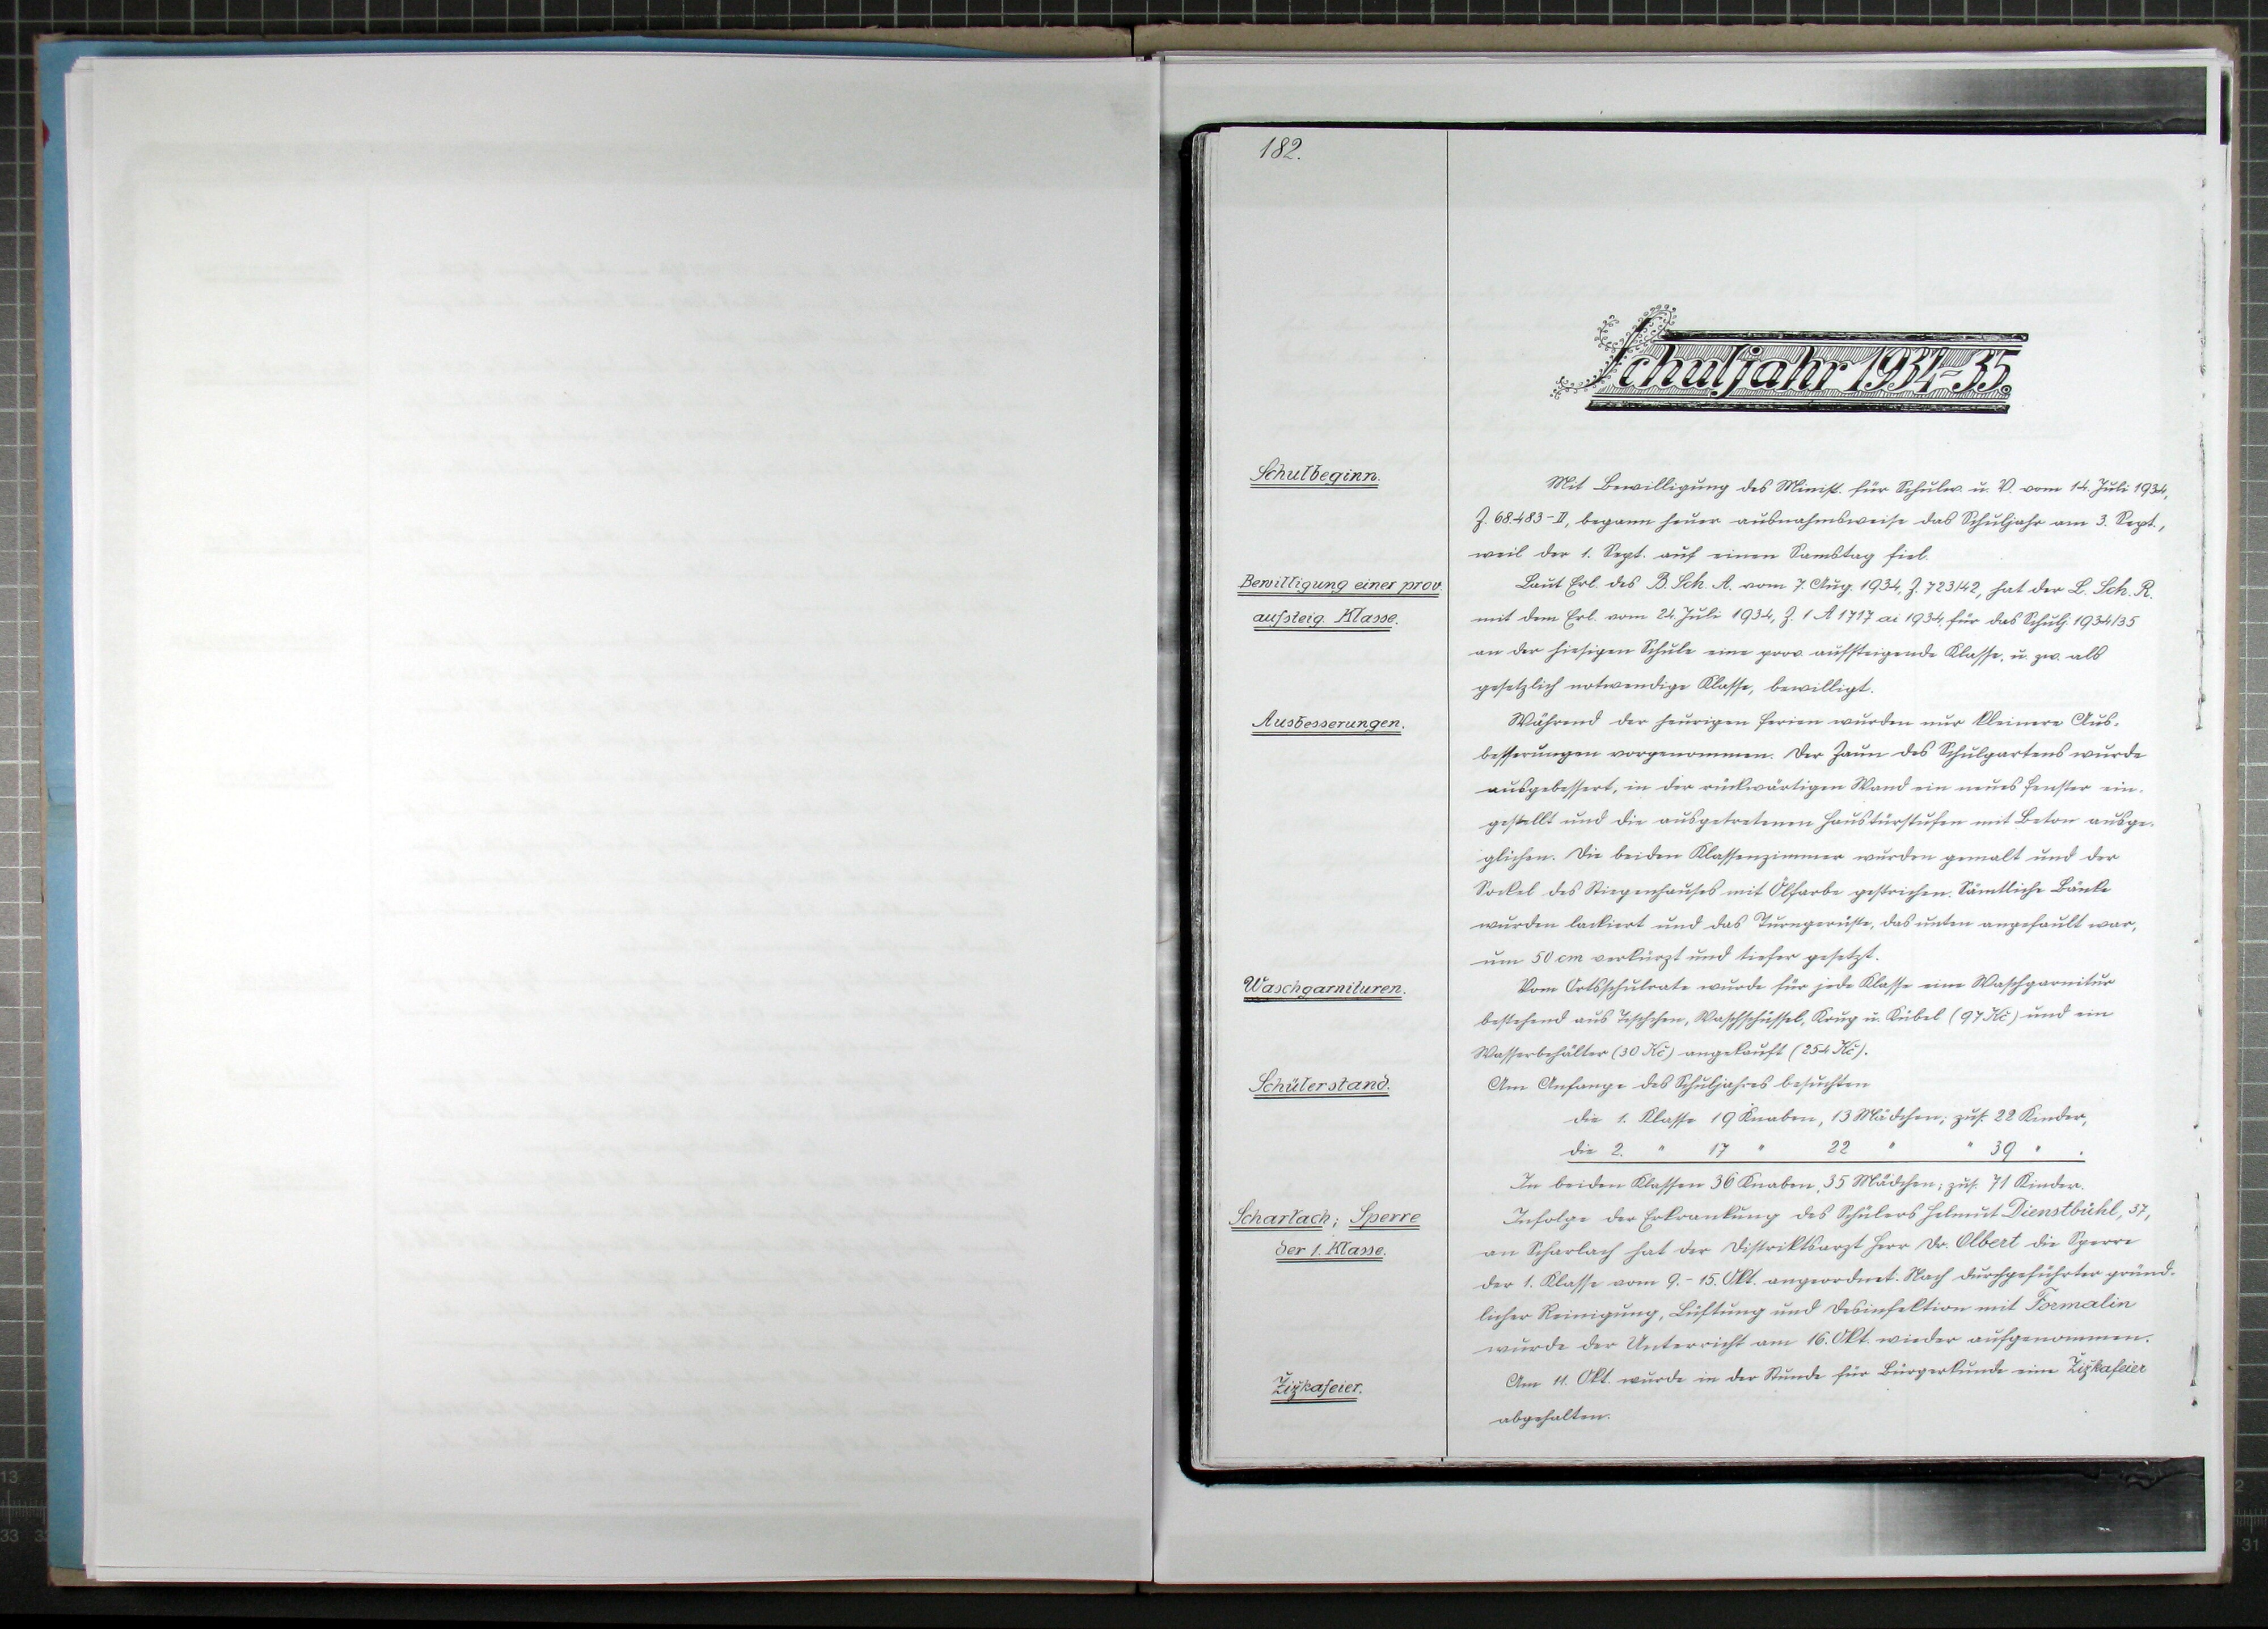 182.
Schuljahr 1934-35.
Schulbeginn.
Mit Bewilligung des Minist. für Schulw. u. V. vom 14. Juli 1934,
Z. 68.483-II, begann heuer ausnahmsweise das Schuljahr am 3. Sept.,
weil der 1. Sept. auf einen Samstag fiel.
Bewilligung einer prov.
aufsteig. Klasse.
Laut Erl. des B. Sch. A. vom 7. Aug. 1934, Z. 723/42, hat der L. Sch. R.
mit dem Erl. vom 24. Juli 1934, Z. 1 A 1717 ai 1934, für das Schulj. 1934/35
an der hiesigen Schule eine prov. aufsteigende Klasse, u. zw. als
gesetzlich notwendige Klasse, bewilligt.
Ausbesserungen.
Während der heurigen Ferien wurden nur kleinere Aus-
besserungen vorgenommen. Der Zaun des Schulgartens wurde
ausgebessert, in der rückwärtigen Wand ein neues Fenster ein-
gestellt und die ausgetretenen Haustürstufen mit Beton ausge-
glichen. Die beiden Klassenzimmer wurden gemalt und der
Sockel des Stiegenhauses mit Ölfarbe gestrichen. Sämtliche Bänke
wurden lackiert und das Turngerüste, das unten angefault war,
um 50 cm verkürzt und tiefer gesetzt.
Waschgarnituren.
Vom Ortsschulrate wurde für jede Klasse eine Waschgarnitur
bestehend aus Tischchen, Waschschüssel, Krug u. Kübel (97 Kč) und ein
Wasserbehälter (30 Kč) angekauft (254 Kč).
Schülerstand.
Am Anfange des Schuljahres besuchten
die 1. Klasse 19 Knaben, 13 Mädchen; zus. 22 Kinder,
die 2. " 17 " 22 " " 39 " .
In beiden Klassen 36 Knaben, 35 Mädchen; zus. 71 Kinder.
Scharlach; Sperre
der 1. Klasse.
Infolge der Erkrankung des Schülers Helmut Dienstbühl, 37,
an Scharlach hat der Distriktsarzt Herr Dr. Olbert die Sperre
der 1. Klasse vom 9.-15. Okt. angeordnet. Nach durchgeführter gründ-
licher Reinigung, Lüftung und Desinfektion mit Formalin
wurde der Unterricht am 16. Okt. wieder aufgenommen.
Žižkafeier.
Am 11. Okt. wurde in der Stunde für Bürgerkunde eine Žižkafeier
abgehalten.
13
33
2
31